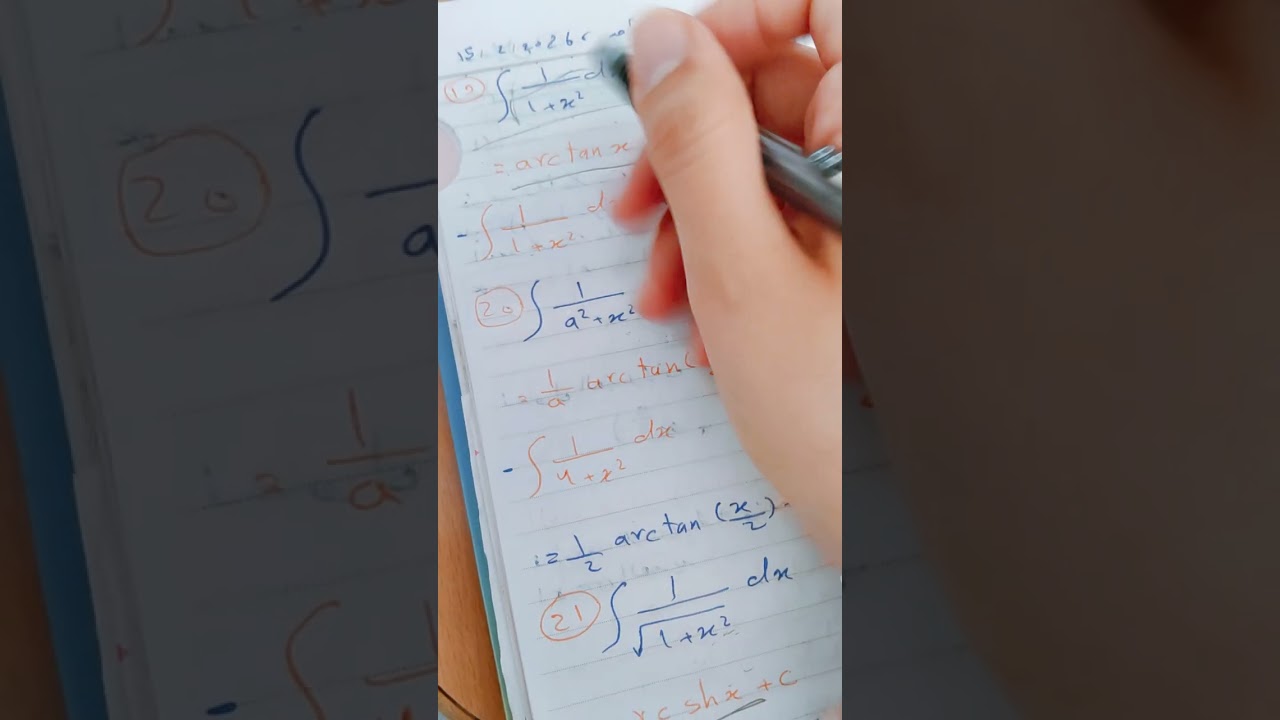 (19) ∫ 1/(1+x²) d
= arctan x
- ∫ 1/(1+x²) d
(20) ∫ 1/(a²+x²)
= 1/a arctan(
- ∫ 1/(4+x²) dx
= 1/2 arctan (x/2)
(21) ∫ 1/√(1+x²) dx
rc shx + c